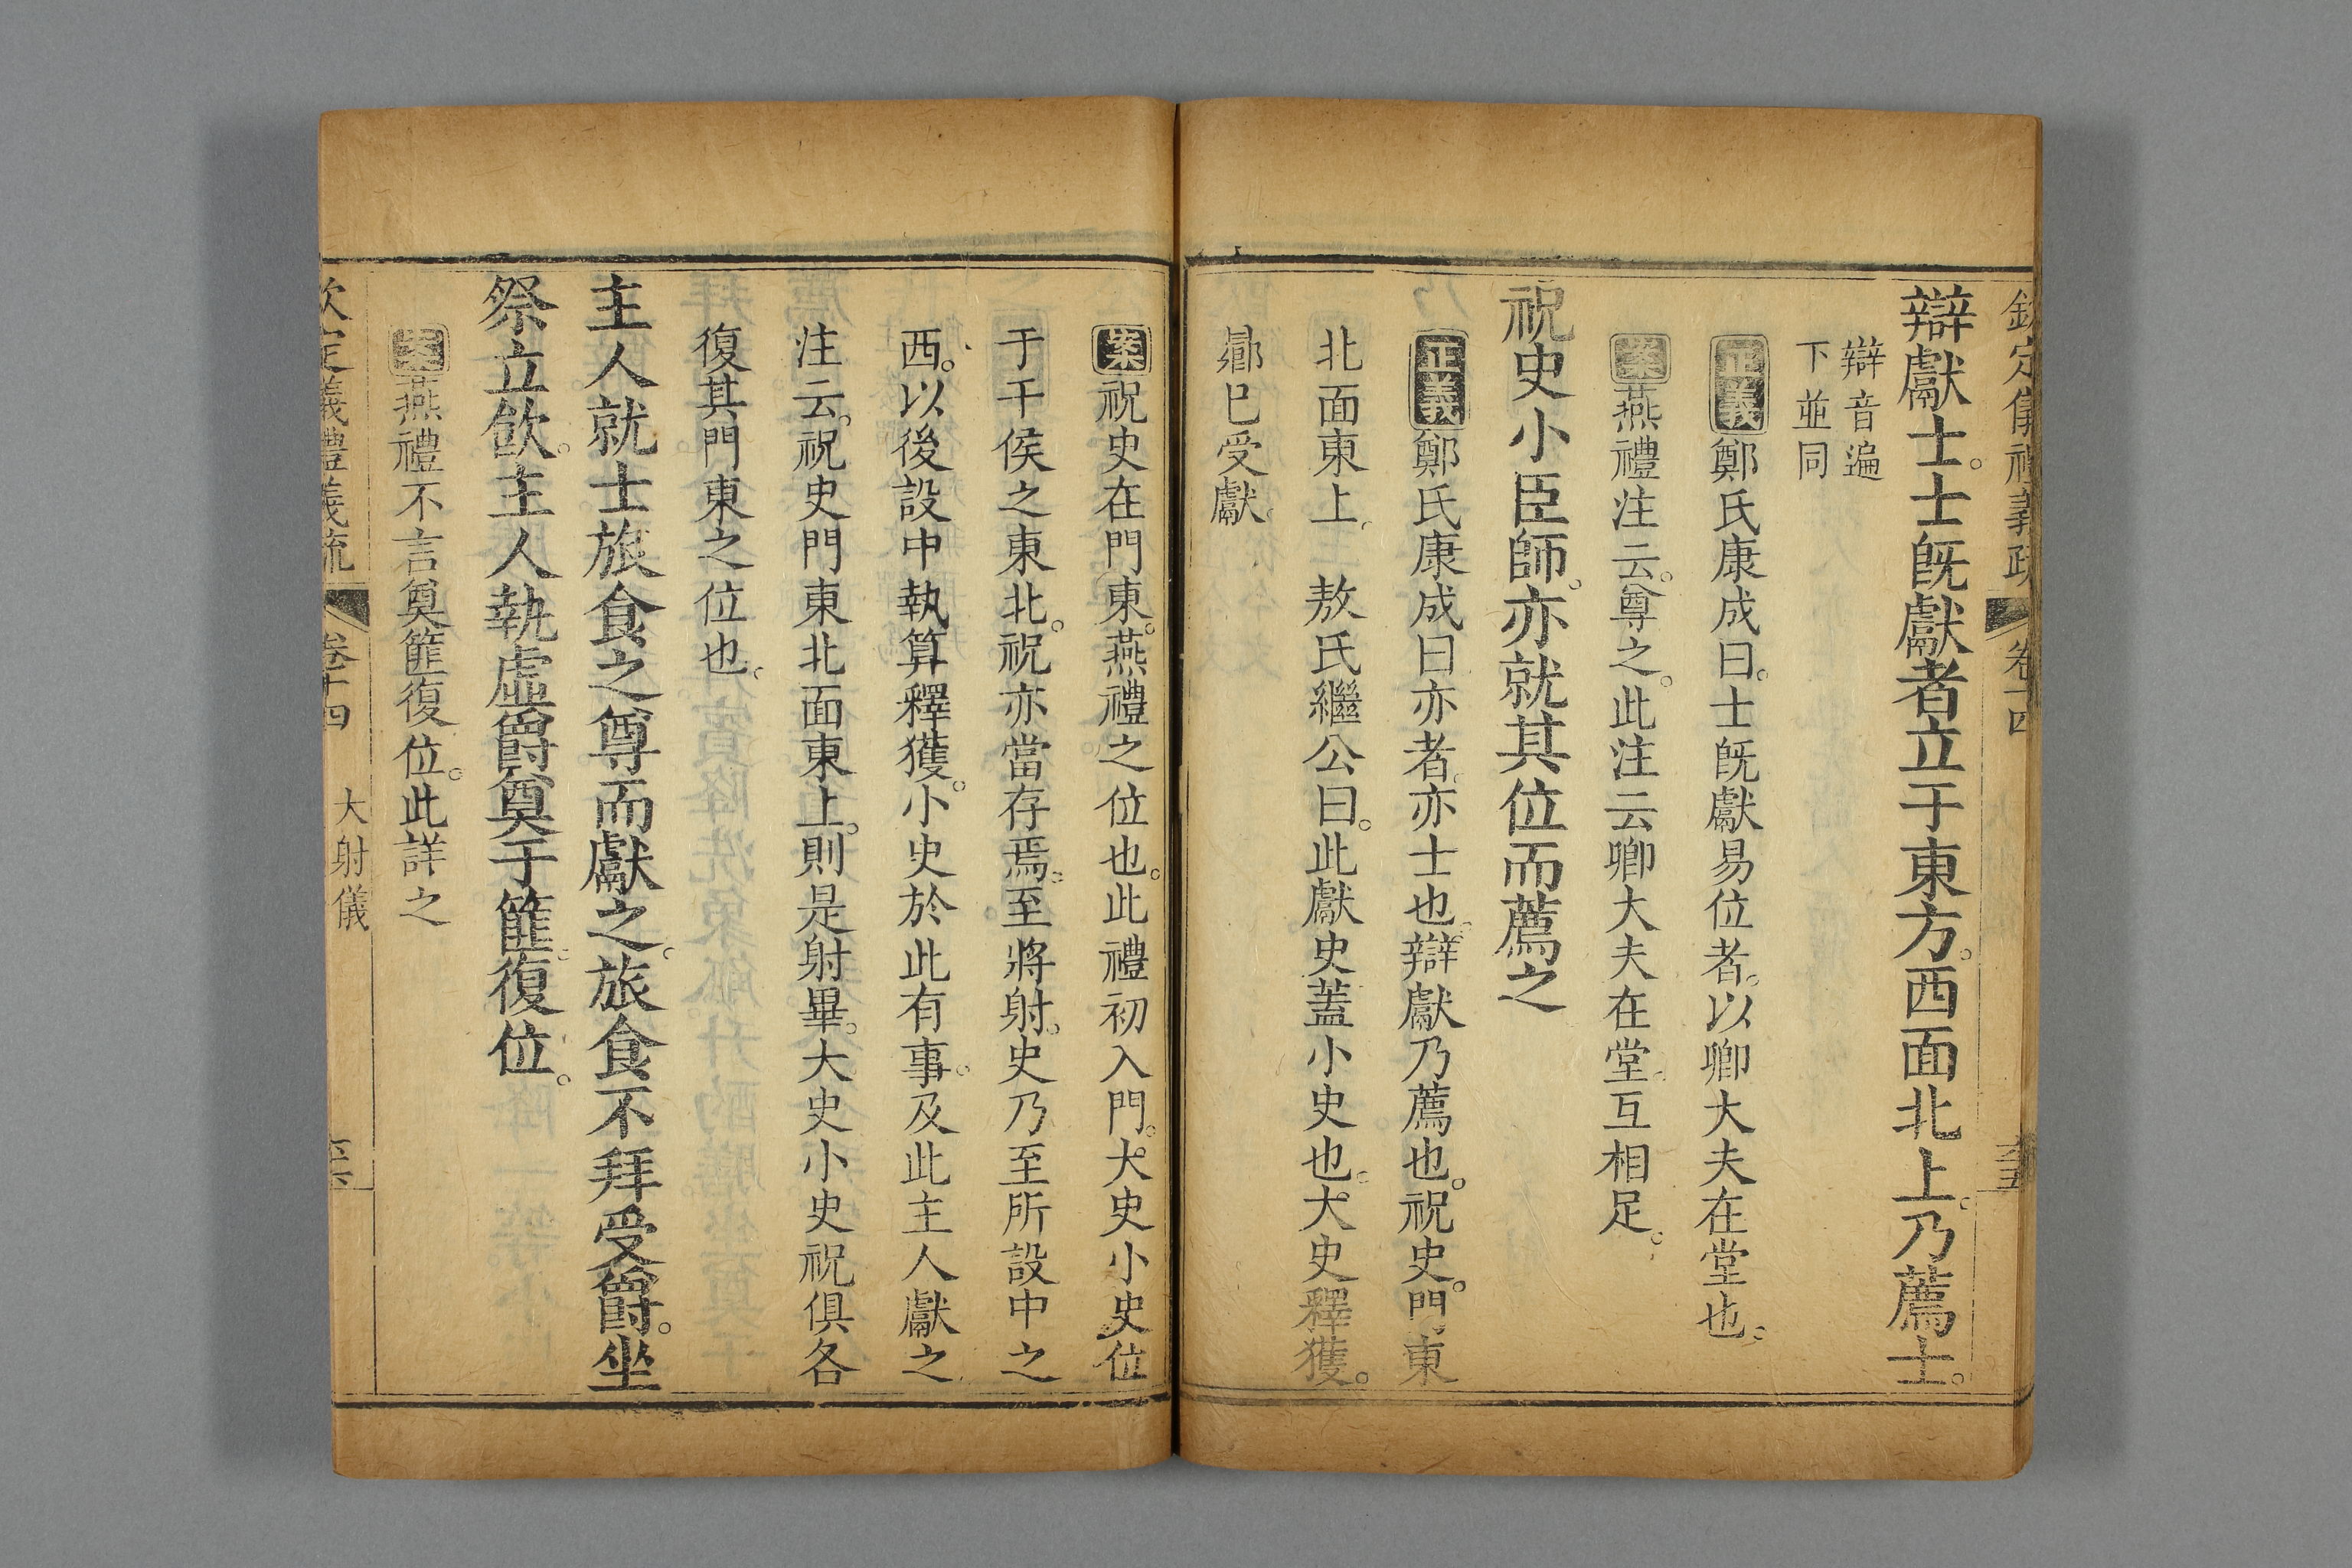 欽定儀禮義疏 卷十四
辯獻士。士旣獻者立于東方。西面北上。乃薦士。
辯音遍
下並同
正義鄭氏康成曰。士旣獻易位者。以卿大夫在堂也。
案燕禮注云。尊之。此注云卿大夫在堂。互相足。
祝史小臣師。亦就其位而薦之
正義鄭氏康成曰亦者。亦士也。辯獻乃薦也。祝史。門東
北面東上。 敖氏繼公曰。此獻史蓋小史也。大史釋獲。
曏巳受獻。
案祝史在門東。燕禮之位也。此禮初入門。大史小史位
于干侯之東北。祝亦當存焉。至將射。史乃至所設中之
西。以後設中執算釋獲。小史於此有事。及此主人獻之
注云。祝史門東北面東上。則是射畢。大史小史祝俱各
復其門東之位也。
主人就士旅食之尊而獻之。旅食不拜受爵。坐
祭立飮。主人執虛爵奠于篚。復位。
案燕禮不言奠篚復位。此詳之
欽定儀禮義疏 卷十四 大射儀